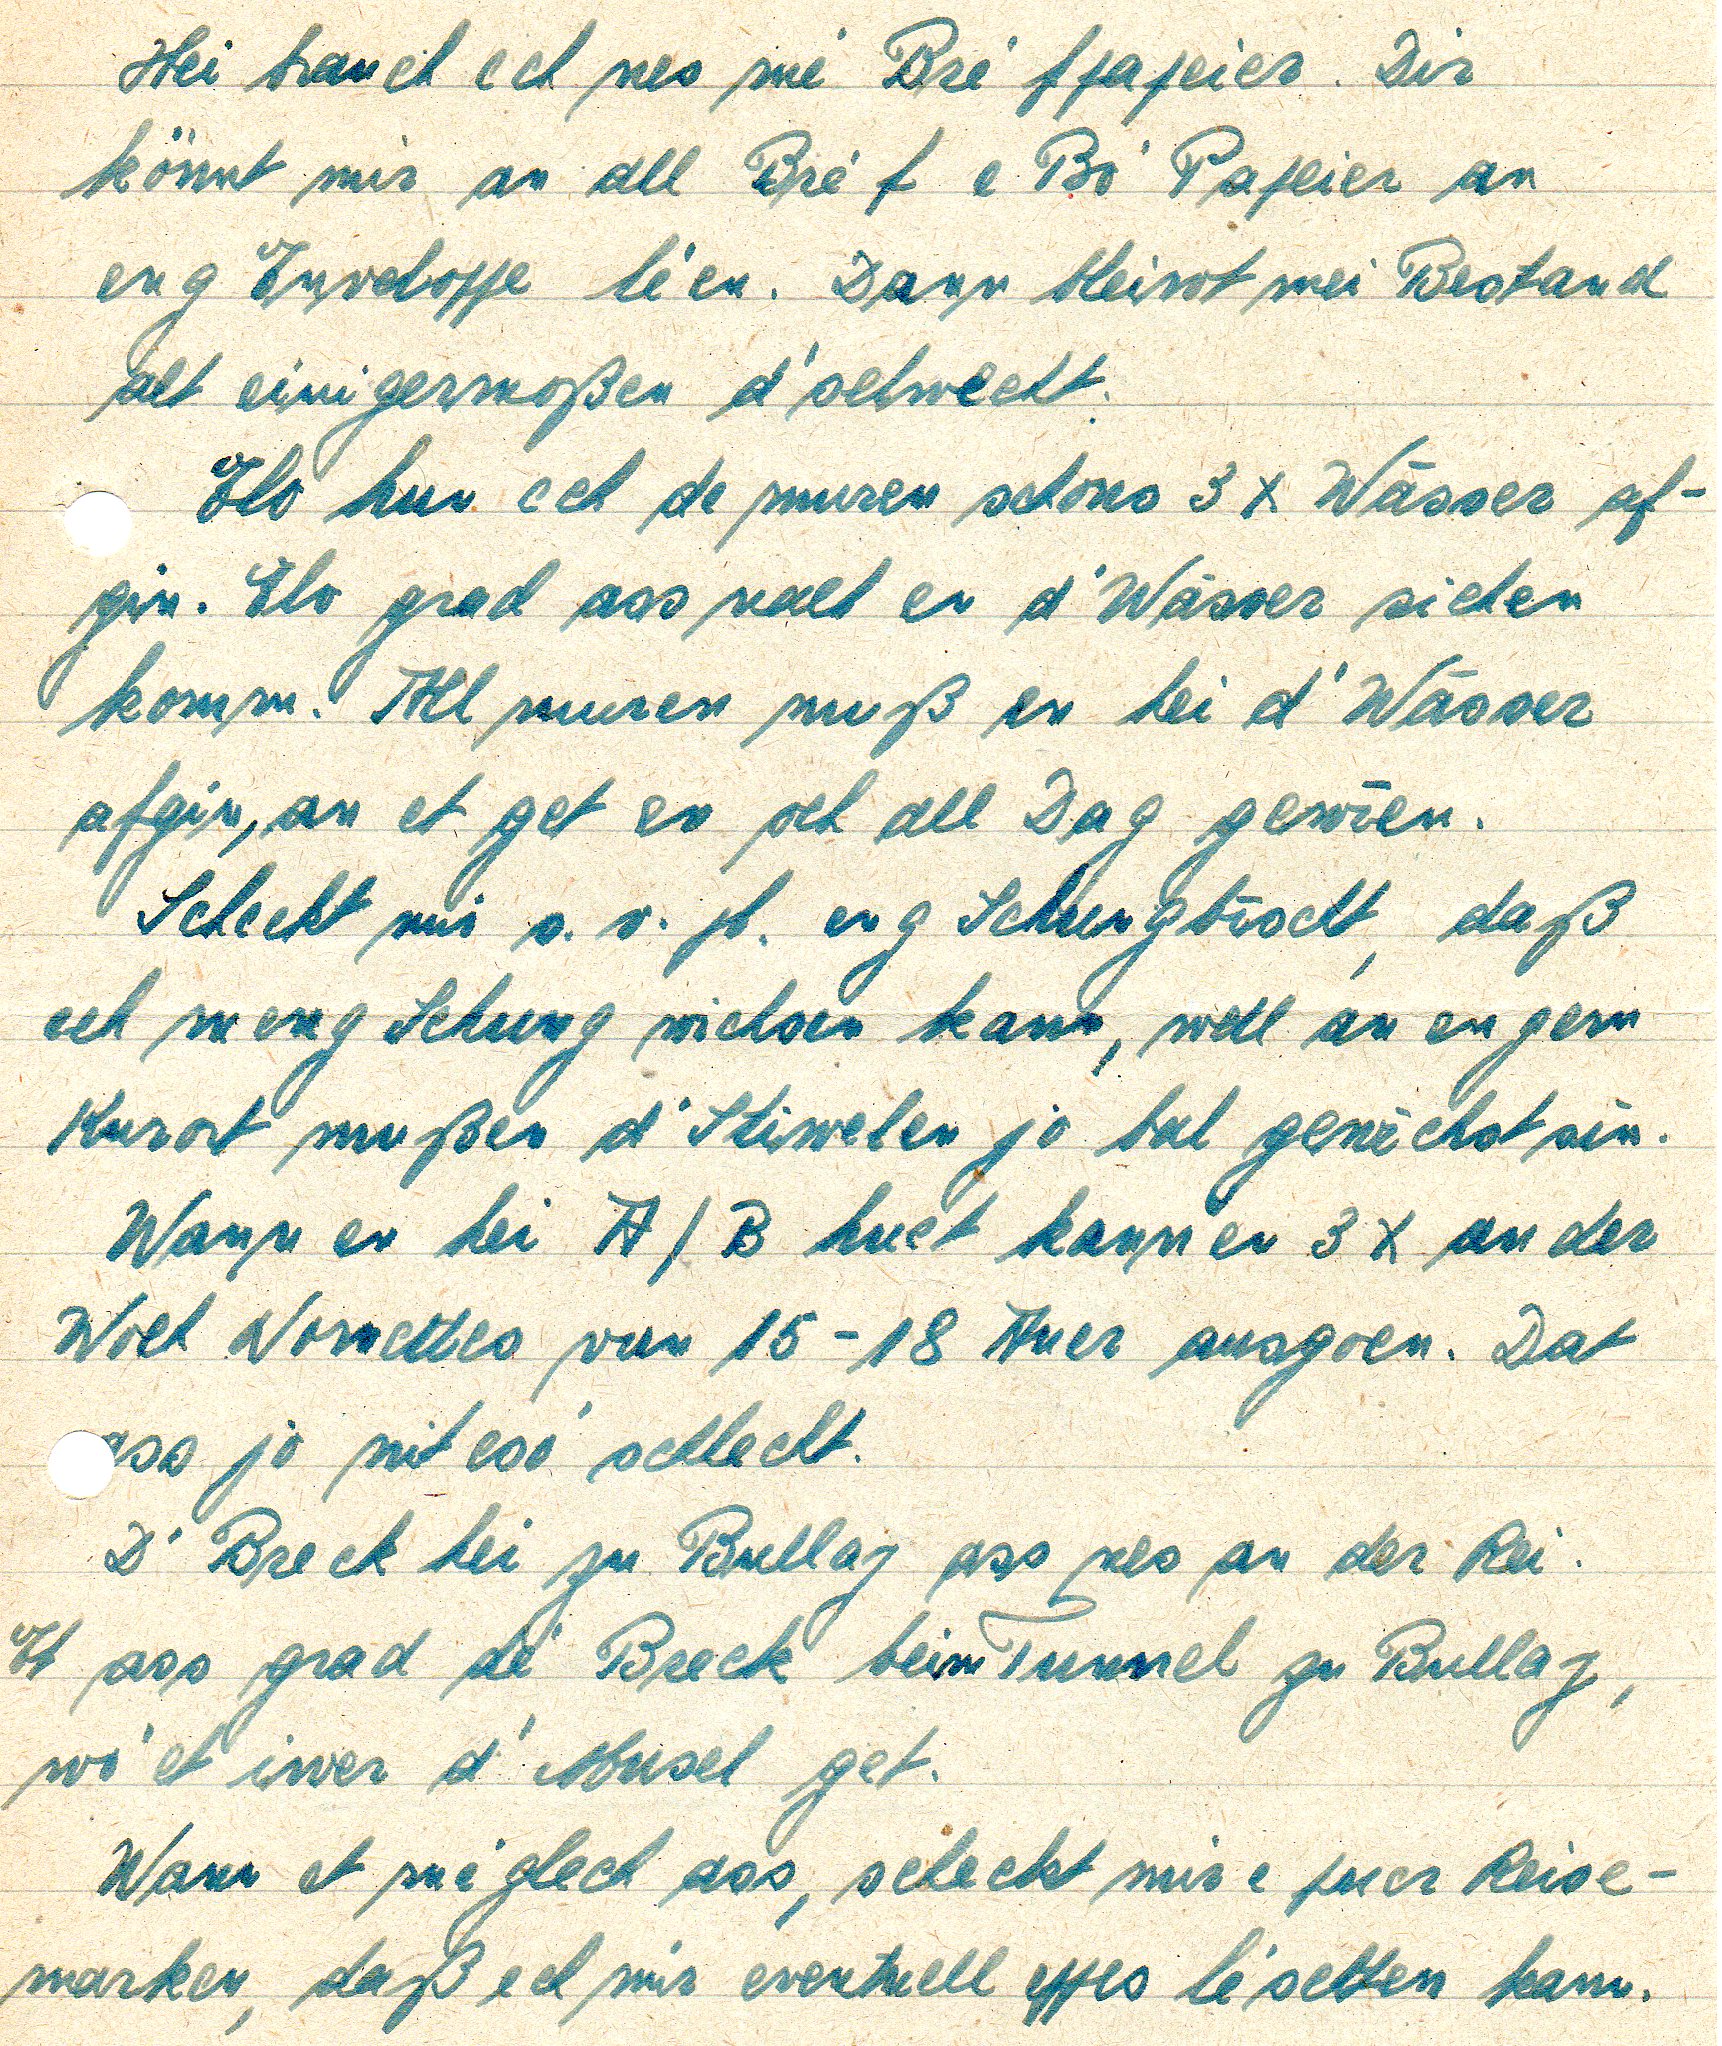 Hei brauch ech nes mé Bréfpapeier. Dir
könnt mir an all Bréf e Bó Papeier an
eng Enveloppe léen. Dann bleiwt mei Bestand
alt einigermoßen d'selwecht.
Elo hun ech de muren schons 3 x Wässer af-
gin. Elo grad ass nach en d'Wässer sichen
komm. All muren muß en hei d'Wässer
afgin, an et get en och all Dag gewien.
Scheckt mir s. v. pl. eng Schungbischt, daß
ech meng Schung wichsen kann, well an engem
Kurort mußen d'Stiwelen jo bal gewichst sin.
Wann en hei A/B huet kann en 3 x an der
Woch Nomettes vun 15-18 Auer ausgoen. Dat
ass jo nit esó schlecht.
D'Breck hei zu Bullay ass nes an der Rei.
Et ass grad dé Breck beim Tunnel zu Bullay,
wó et iwer d'Musel get.
Wann et méglech ass, scheckt mir e puer Reise-
marken, daß ech mir eventuell eppes léschten kann.